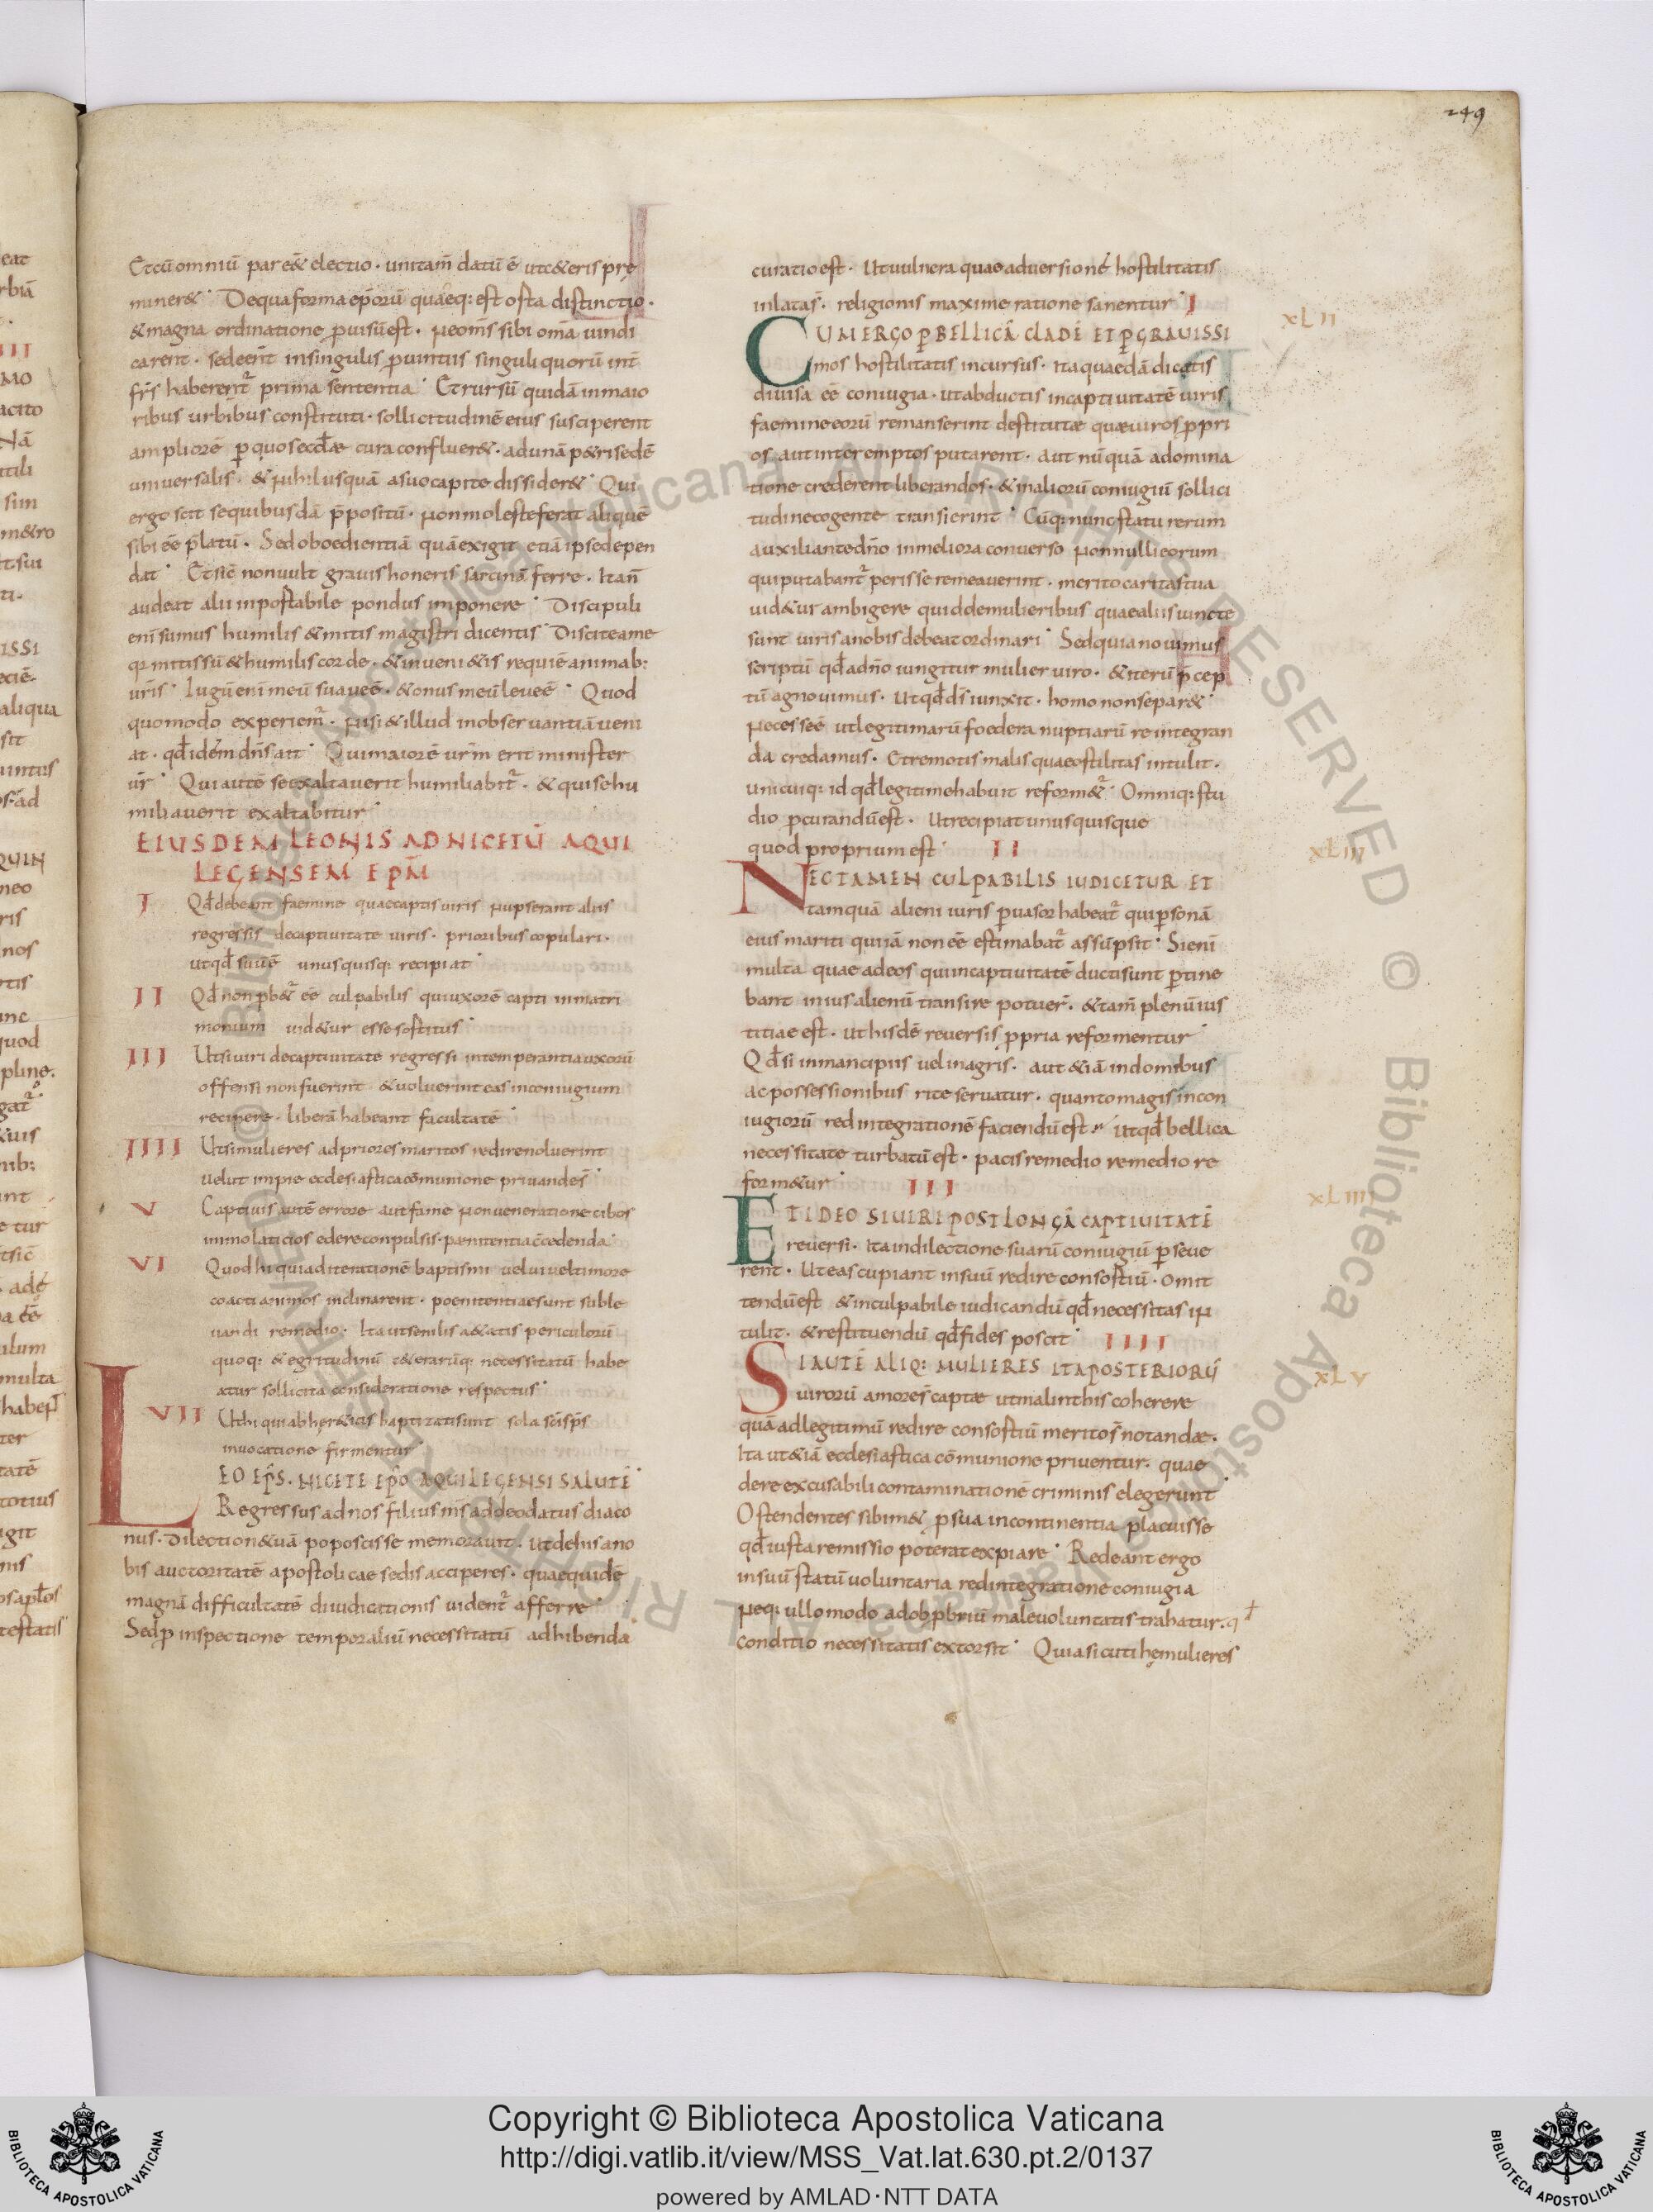 249
Etcū omniū par eēt electio · uni tam̄ datū ē ut ceteris pre
mineret · De qua forma ep̄orū quaeq: est orta distinctio ·
& magna ordinatione puisū est · ne om̄s sibi om̄a uindi
carent · sed eēnt in singulis puintiis singuli quorū int̄
fr̄s haberent̄ prima sententia · Et rursū quidā in maio
ribus urbibus constituti · sollicitudinē eius susciperent
ampliorē p quos ecctae cura conflueret · ad unā petri sedē
uniuersalis · & nihil usquā a suo capite dissideret · Qui
ergo scit se quibusdā ppositū · non moleste ferat aliquē
sibi eē platū · Sed oboedientiā quā exigit etiā ipse depen
dat · Et sic̄ non uult grauis honeris sarcinā ferre · Ita n̄
audeat alii inportabile pondus imponere · Discipuli
enī sumus humilis & mitis magistri dicentis · Discite a me
qr mitis sū & humilis corde · & inuenietis requiē animab:
ur̄is · Iugū enī meū suaue ē · & onus meū leue ē · Quod
quomodo experiem̄ · nisi & illud in obseruantiā ueni
at · qd idem dn̄s ait · Qui maior ē ur̄m erit minister
ur̄ · Qui autē se exaltauerit humiliabit̄ · & qui se hu
miliauerit exaltabitur ·
EIUSDEM LEONIS AD NICETŪ AQUI
LEGENSEM EPM̄
I Qd debeant faemine quae captis uiris nupserant aliis
regressis de captiuitate uiris · prioribus copulari ·
ut qd suū ē unusquisq: recipiat ·
II Qd non pbet̄ eē culpabilis qui uxorē capti in matri
monium uidetur esse sortitus ·
III Ut si uiri de captiuitate regressi intemperantia uxorū
offensi non fuerint & uoluerint eas in coniugium
recipere · liberā habeant facultatē ·
IIII Ut si mulieres ad priores maritos redire noluerint
uelut impie ecclesiastica cōmunione priuandes ·
V Captiuis autē errore aut fame non ueneratione cibos
immolaticios edere conpulsis · paenitentia c̄cedenda ·
VI Quod hi qui ad iterationē baptismi uel ui uel timore
coacti animos inclinarent · poenitentiae sunt suble
uandi remedio · Ita ut senilis aetatis periculorū
quoq: & egritudinū & ceterarūq: necessitatū habe
atur sollicita consideratione respectus ·
VII Ut hi qui ab hereticis baptizati sunt sola sc̄i sp̄s
inuocatione firmentur ·
LEO EP̄S · NICETE EP̄O AQUILEGENSI SALUTĒ ·
Regressus ad nos filius nr̄s addeodatus diaco
nus · dilectionē tuā poposcisse memorauit · ut de his a no
bis auctoritatē apostolicae sedis acciperes · quae quidē
magnā difficultatē diiudicationis uident̄ afferre ·
Sed p inspectione temporaliū necessitatū adhibenda
curatio est · Ut uulnera quae aduersionē hostilitatis
inlata s̄ · religionis maxime ratione sanentur · I
XLII
CUM ERGO P BELLICĀ CLADĒ ET P GRAUISSI
mos hostilitatis incursus · ita quaedā dicatis
diuisa eē coniugia · ut abductis in captiuitatē uiris
faemine eorū remanserint destitutae quae uiros ppri
os aut interemptos putarent · aut nūquā a domina
tione crederent liberandos · & in aliorū coniugiū sollici
tudine cogente transierint · Cūq: nunc statu rerum
auxiliante dn̄o in meliora conuerso nonnulli eorum
qui putabant̄ perisse remeauerint · merito caritas tua
uidetur ambigere quid de mulieribus quae aliis iuncte
sunt uiris a nobis debeat ordinari · Sed quia nouimus
scriptū qd a dn̄o iungitur mulier uiro · & iterū pcep
tū agnouimus · ut qd ds̄ iunxit · homo non separet ·
necesse ē ut legitimarū foedera nuptiarū reintegran
da credamus · Et remotis malis quae ostilitas intulit ·
unicuiq: id qd legitime habuit reformet̄ · Omniq: stu
dio pcurandū est · Ut recipiat unusquisque
quod proprium est · II
XLIII
NEC TAMEN CULPABILIS IUDICETUR ET
tamquā alieni iuris puasor habeat̄ qui psonā
eius mariti qui iā non eē estimabat̄ assūpsit · Si enī
multa quae ad eos qui in captiuitatē ducti sunt ptine
bant in ius alienū transire potuer̄ · & tam̄ plenū ius
titiae est · ut hisdē reuersis ppria reformentur ·
Qd si in mancipiis uel in agris · aut etiā in domibus
ac possessionibus rite seruatur · quanto magis in con
iugiorū redintegrationē faciendū est · Ut qd bellica
necessitate turbatū est · pacis remedio remedio re
formetur · III
XLIIII
ET IDEO SI UIRI POST LONGĀ CAPTIUITATĒ
reuersi · Ita in dilectione suarū coniugū pseue
rent · Ut eas cupiant in suū redire consortiū · omit
tendū est & inculpabile iudicandū qd necessitas in
tulit · & restituendū qd fides poscit · IIII
XLV
SI AUTĒ ALIQ: MULIERES ITA POSTERIORŪ
uirorū amore s̄ captae ut malint his coherere
quā ad legitimū redire consortiū merito s̄ notandae ·
Ita ut etiā ecclesiastica cōmunione priuentur · quae
de re excusabili contaminationē criminis elegerunt ·
Ostendentes sibimet p sua incontinentia placuisse
qd iusta remissio poterat expiare · Redeant ergo
in suū statū uoluntaria redintegratione coniugia
neq: ullo modo ad obpbriū male uoluntatis trahatur · qd
conditio necessitatis extorsit · Quia sicuti he mulieres
Copyright © Biblioteca Apostolica Vaticana
http://digi.vatlib.it/view/MSS_Vat.lat.630.pt.2/0137
powered by AMLAD·NTT DATA